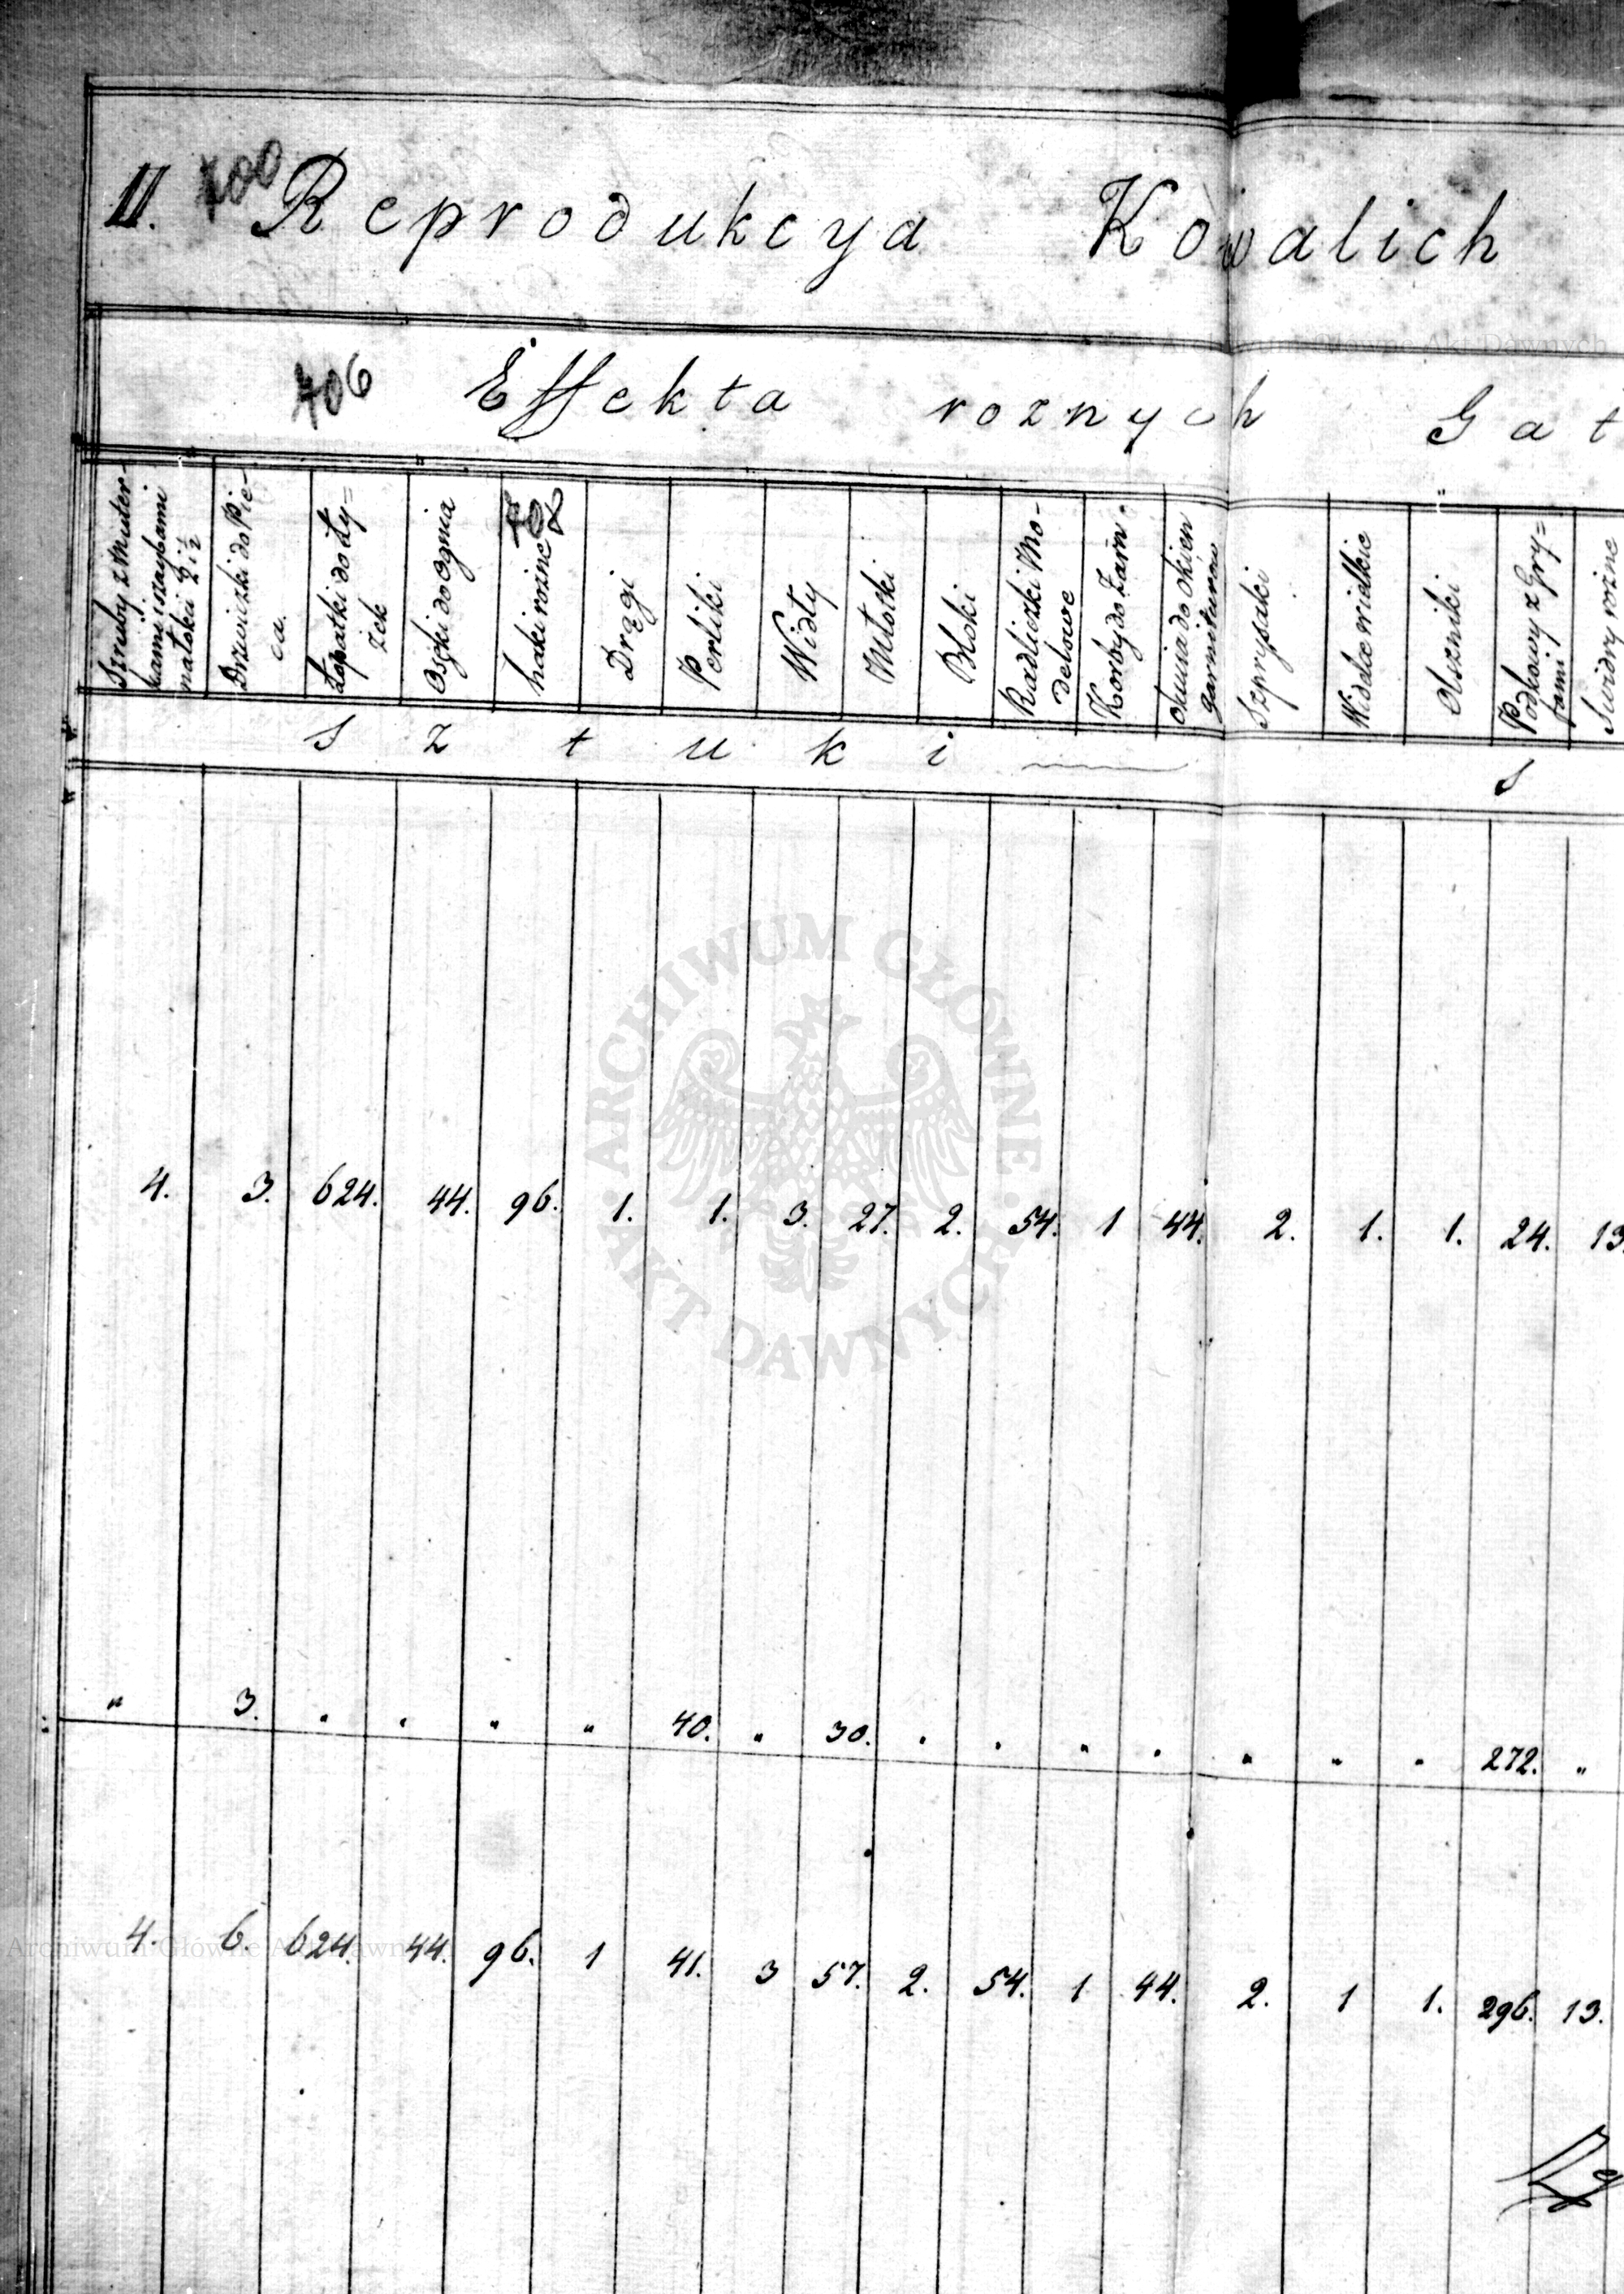 II. 400 Reprodukcya Kowalich
406 Effekta roznych Gat
Szruby z Muter-
kami i szaybami
natokii
Drzwiczki do Pie-
ca.
Łopatki do Ły=
żek
Ośzki do Ognia
haki rożne
Drągi
Perliki
Widły
Młotki
Bloki
Radliczki Mo-
delowe
Korby do Żarn.
okucia do okien
garniturow
Szprysaki
Widelce wielkie
Podkowy z Gry=
fami
Swidry rożne
Sztuki S
4. 3. 624. 44. 96. 1. 1. 3. 27. 2. 54. 1 44. 2. 1. 1. 24. 13.
" 3. " " " " 40. " 30. " " " " " " " 272. "
4. 6. 624. 44. 96. 1 41. 3 57. 2. 54. 1 44. 2. 1 1. 296. 13.
ARCHIWUM GŁÓWNE AKT DAWNYCH
Archiwum Główne Akt Dawnych
Archiwum Główne Akt Dawnych